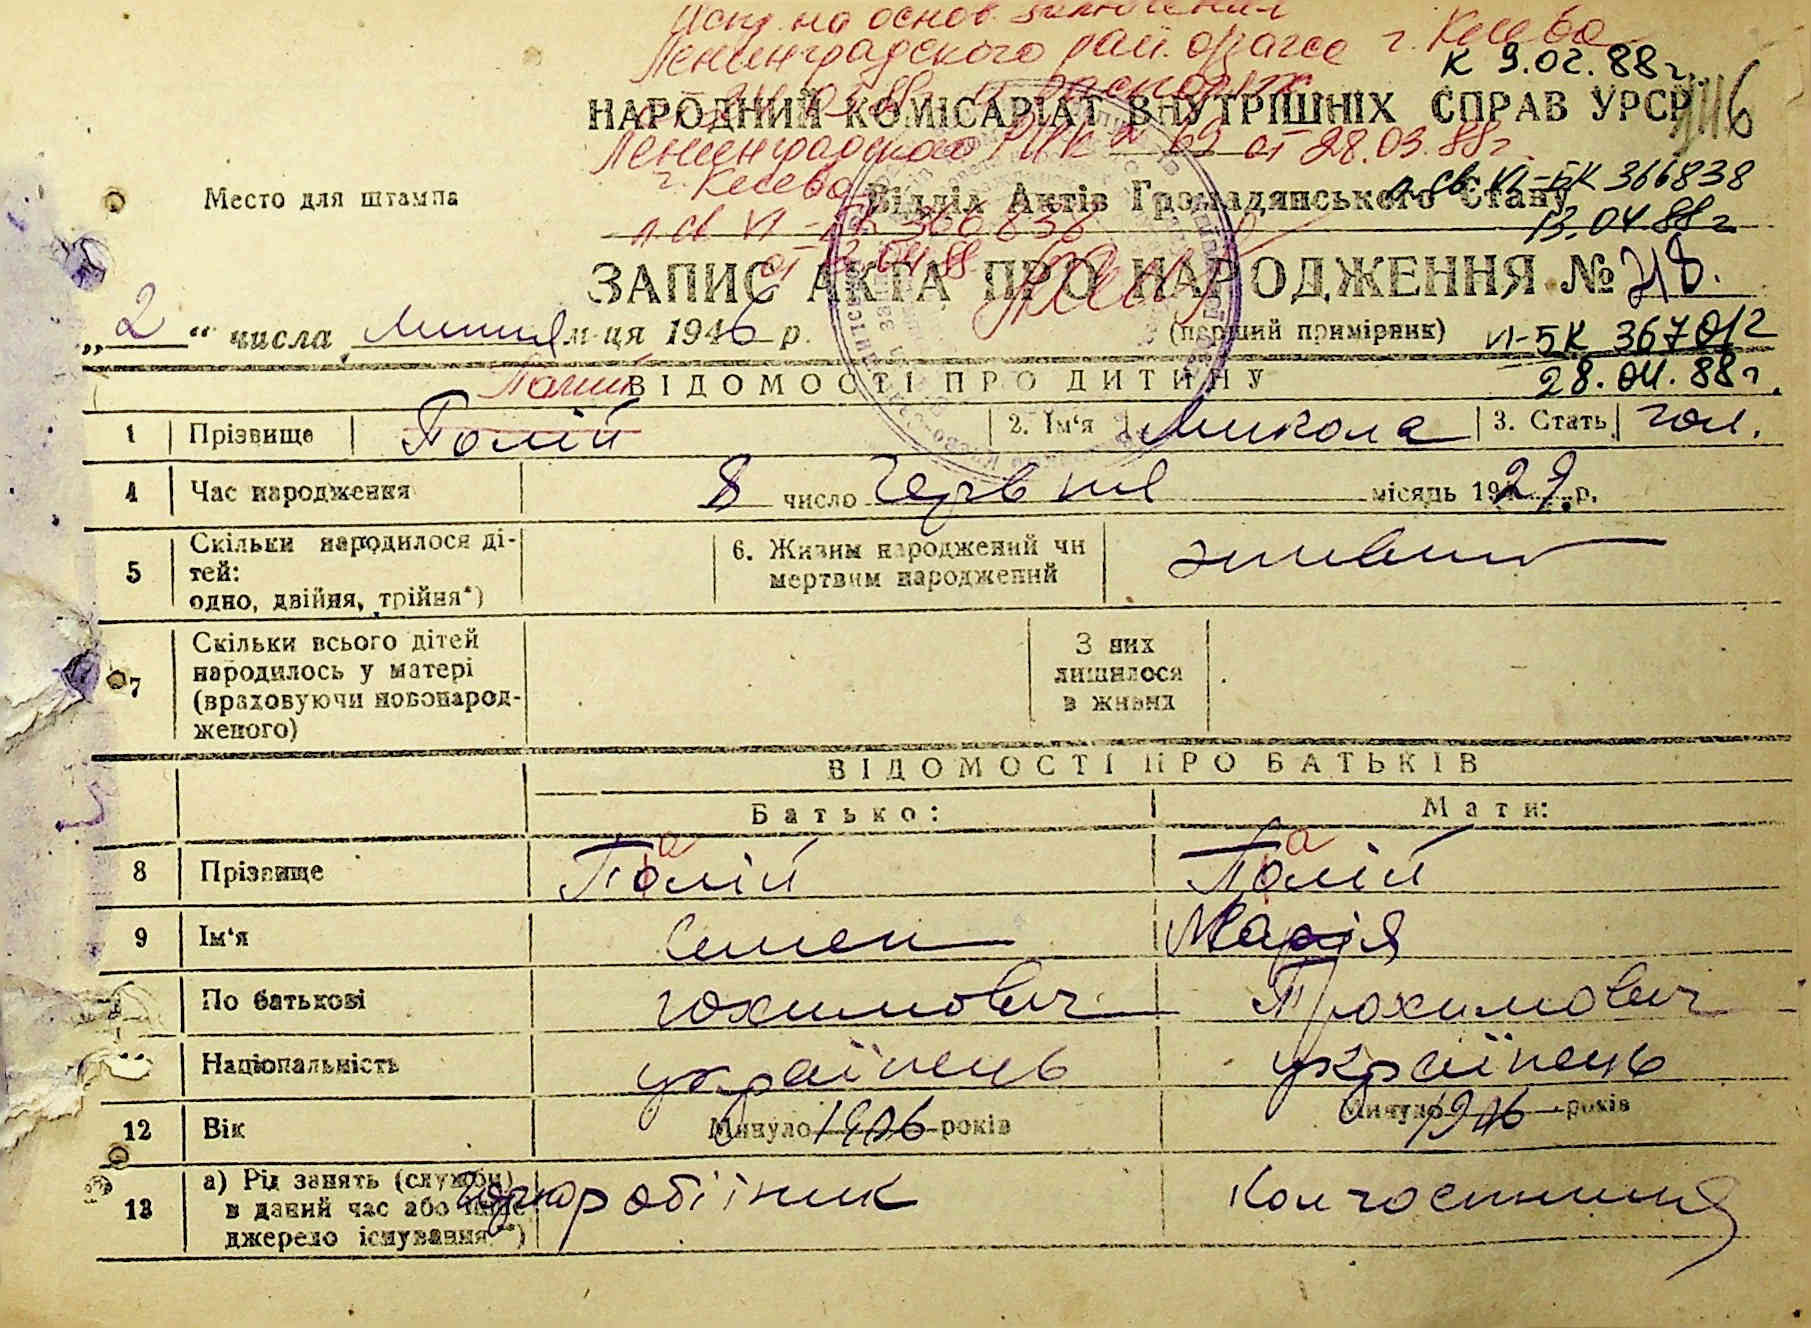 Испр. на основ. заключения
Ленинградского рай. отдзагса г. Киева
К 9.02.88 г.
1116
НАРОДНИЙ КОМІСАРІАТ ВНУТРІШНІХ СПРАВ УРСР
Ленинградского РИК 69 от 28.03.88 г.
г. Киева
п. св. VI-БК 366838
Место для штампа
Відділ Актів Громадянського Стану
п. св VI-БК 366838
13.04.88 г
от 13.04.88
ЗАПИС АКТА ПРО НАРОДЖЕННЯ № 218.
„2“ числа липня м-ця 1946 р.
(перший примірник)
VI-БК 367012
28.04.88 г.
ВІДОМОСТІ ПРО ДИТИНУ
1 Прізвище Полій 2. Ім‘я Микола 3. Стать чол.
4 Час народження 8 число червня місяць 1929 р.
5 Скільки народилося ді-
тей:
одно, двійня, трійня*)
6. Живим народжений чи
мертвим народжений
живим
7 Скільки всього дітей
народилось у матері
(враховуючи новонарод-
женого)
З них
лишилося
в живих
ВІДОМОСТІ ПРО БАТЬКІВ
Батько: Мати:
а а
8 Прізвище Полій Полій
9 Ім‘я Семен Марія
По батькові Юхимович Трохимович
Національність українець українець
12 Вік Минуло 1906 років Минуло 1906 років
13 а) Рід занять (служби)
в даний час або інше
джерело існування **)
чорноробітник Колгоспниця